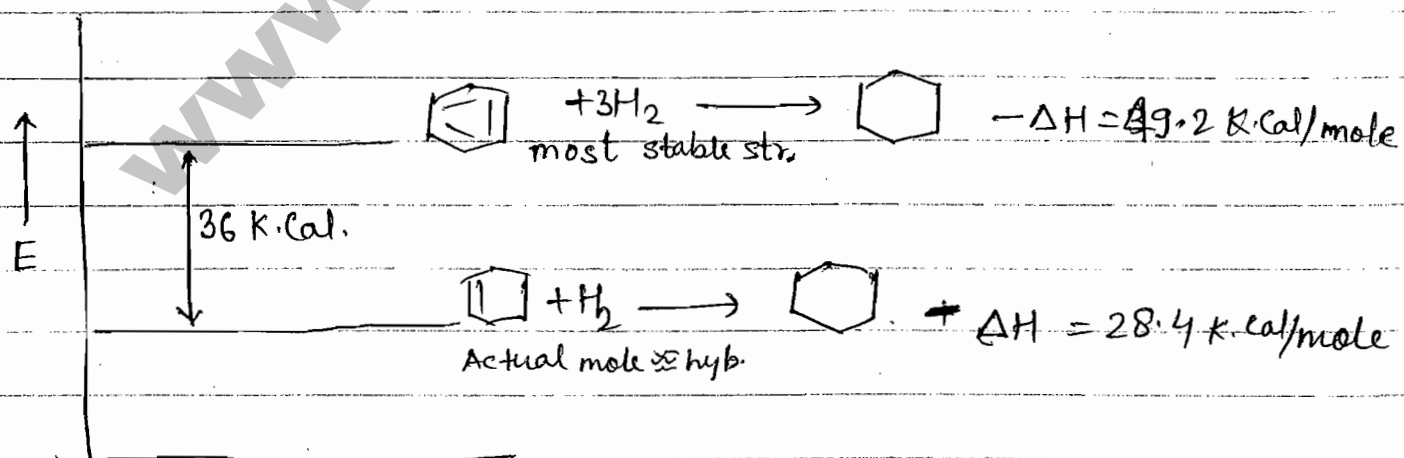 www
+3H₂ ⟶ −ΔH = 49.2 K.Cal/mole
most stable str.
36 K.Cal.
E
+H₂ ⟶ ΔH = 28.4 K.Cal/mole
Actual mole ≈ hyb.